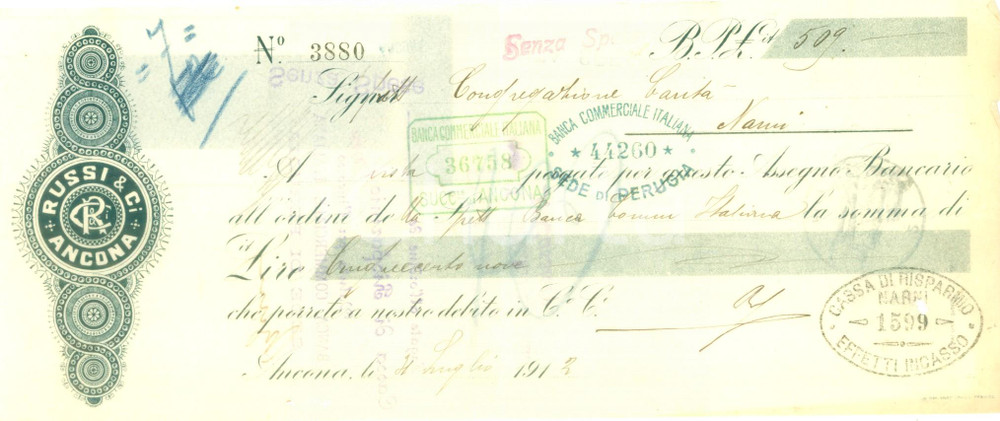 Nº 3880
Senza Sp
B.P.£ 509.
Sig Congregazione Carità
Narni
BANCA COMMERCIALE ITALIANA
36758
SUCC. ANCONA
BANCA COMMERCIALE ITALIANA
* 44260 *
SEDE DI PERUGIA
A vista pagate per questo Assegno Bancario
all'ordine de la Spett Banca Comm Italiana la somma di
Lire Cinquecento nove
che porrete a nostro debito in C. C.
Ancona, li Luglio 191
RUSSI & Ci
ANCONA
CASSA DI RISPARMIO
NARNI
1599
EFFETTI INCASSO